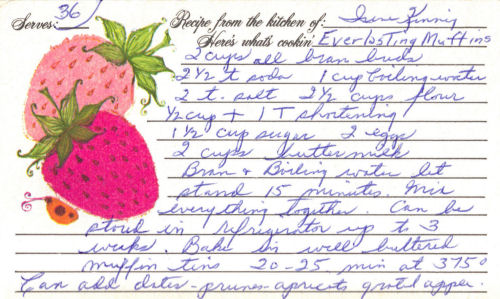 Serves: 36
Recipe from the kitchen of: Irene
Here's what's cookin' Everlasting Muffins
2 cups all bran buds
2 1/2 t soda 1 cup boiling water
2 t. salt 2 1/2 cups flour
1/2 cup + 1 T shortening
1 1/2 cup sugar 2 eggs
2 cups buttermilk
Bran & Boiling water let
stand 15 minutes. Mix
everything together. Can be
stored in refrigerator up to 3
weeks. Bake in well buttered
muffin tins 20-25 min at 375°
Can add dates-prunes-apricots grated apple.